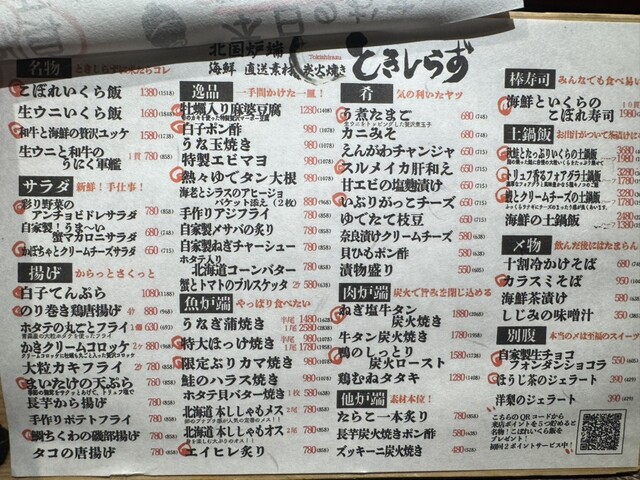 北国炉端
海鮮 直送素材 炭火焼き
Tokishirazu
ときしらず
名物 ときしらず来たらコレ
こぼれいくら飯 1380(1518)
生ウニいくら飯 1680
和牛と海鮮の贅沢ユッケ 1580
生ウニと和牛の
うにく軍艦 1貫 780(858)
サラダ 新鮮!手仕事!
彩り野菜の
アンチョビドレサラダ 780(858)
自家製!うま〜い
蟹マカロニサラダ 680
かぼちゃとクリームチーズサラダ 650
揚げ からっとさくっと
白子てんぷら 1080(1188)
のり巻き鶏唐揚げ 880(968)
ホタテの丸ごとフライ 1個 630(693)
かきクリームコロッケ 2ヶ 880(968)
大粒カキフライ 2ヶ 780(858)
まいたけの天ぷら 780
長芋から揚げ 780(858)
手作りポテトフライ 780(858)
鯛ちくわの磯部揚げ 780(858)
タコの唐揚げ 780(858)
逸品 一手間かけた一皿!
牡蠣入り麻婆豆腐 1280(1408)
白子ポン酢 980(1078)
うな玉焼き 980(1078)
特製エビマヨ 980(1078)
熱々ゆでタン大根 980(1078)
海老とシラスのアヒージョ
バケット添え(2枚) 880(968)
手作りアジフライ 780(858)
自家製メサバの炙り 780(858)
自家製ねぎチャーシュー 780(858)
ホタテ入り
北海道コーンバター 780(858)
蟹とトマトのブルスケッタ 2ケ 580
魚炉端 やっぱり食べたい
うなぎ蒲焼き 半尾 1480
1尾 2580
特大ほっけ焼き 半尾 980
1尾 1780
限定ぶりカマ焼き 980
鮭のハラス焼き 980
ホタテ貝バター焼き 1枚 580
北海道 本ししゃもメス 780(858)
北海道 本ししゃもオス 780(858)
エイヒレ炙り 780(858)
肴 気の利いたヤツ
うに煮たまご 680(748)
カニみそ 680(748)
えんがわチャンジャ 650(715)
スルメイカ肝和え 650(715)
甘エビの塩麹漬け 650(715)
いぶりがっこチーズ 580
ゆでたて枝豆 580
奈良漬けクリームチーズ 580
貝ひもポン酢 580
漬物盛り 550(605)
肉炉端 炭火で旨みを閉じ込める
ねぎ塩牛タン
炭火焼き 1880(2068)
牛タン炭火焼き 1780
鶏のしっとり
炭火ロースト 1580
鶏むねタタキ 1480
他炉端 素材本位!
たらこ一本炙り 780(858)
長芋炭火焼きポン酢 580
ズッキーニ炭焼き 480(528)
棒寿司 みんなでも食べ易い
海鮮といくらの
こぼれ寿司 1980
土鍋飯 お出汁がついて茶漬けに
秋鮭とたっぷりいくらの土鍋飯
トリュフ香るフォアグラ土鍋飯
鰻とクリームチーズの土鍋飯
海鮮の土鍋飯
〆物 飲んだ後にはたまらん
十割冷かけそば 680
カラスミそば 980
海鮮茶漬け 580
しじみの味噌汁 350
別腹 本当の〆は至福のスイーツ
自家製生チョコ
フォンダンショコラ 550
ほうじ茶のジェラート 390
洋梨のジェラート 390
こちらのQRコードから
来店ポイントを5つ貯めると
名物!こぼれいくら飯を
プレゼント!
初回2ポイントサービス中!